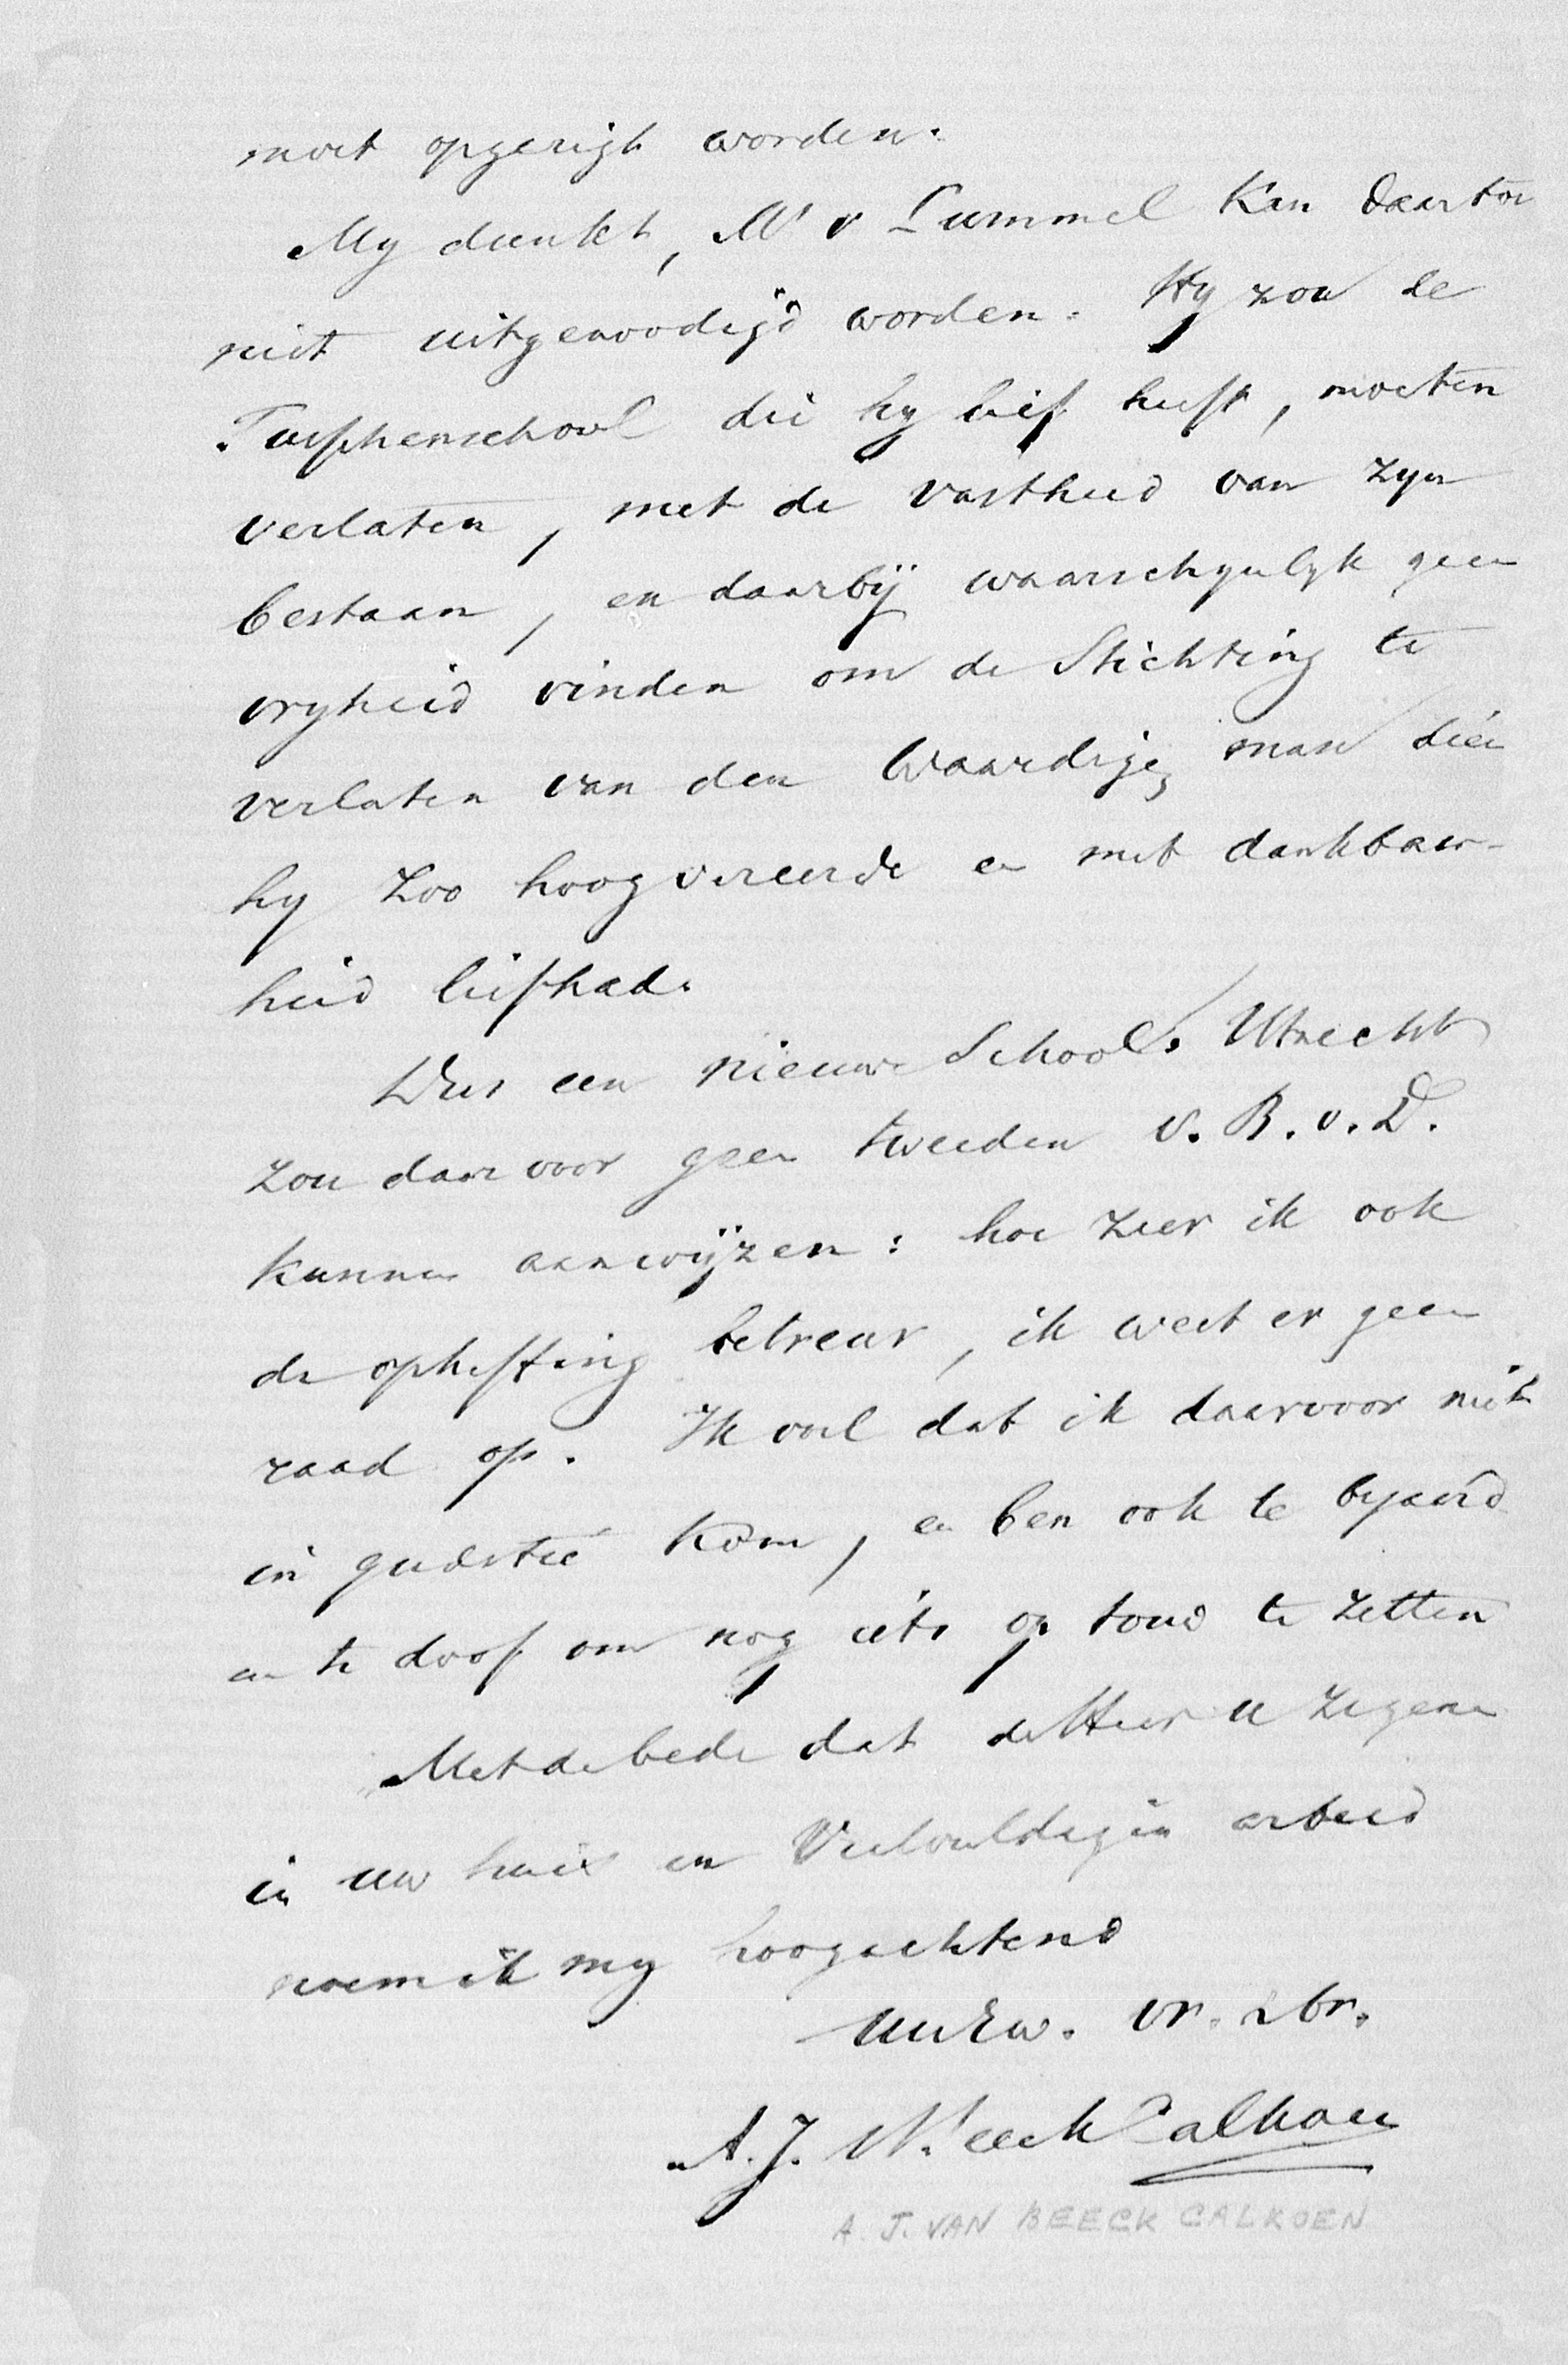 moet opgerigt worden.
My dunkt, Mr v Lummel kan daartoe
niet uitgenoodigd worden. Hy zou de
school die hy lief heeft, moeten
verlaten, met de vastheid van zyn
bestaan, en daarbij waarschynlyk geen
vryheid vinden om de Stichting te
verlaten van den waardigen man dien
hy zoo hoog vereerde en met dankbaar-
heid liefhad.
Dus een nieuwe School. Utrecht
zou daarvoor geen tweeden v. B. v. D.
kunnen aanwijzen: hoe zeer ik ook
de opheffing betreur, ik weet er geen
raad op. Ik voel dat ik daarvoor niet
in questie kom, en ben ook te bejaard
en te doof om nog iets op touw te zetten
Met de bede dat de Heer u zegene
in uw huis en veelvuldigen arbeid
noem ik my hoogachtend
UwEw. vr. & br.
A. J. v. Beeck Calkoen
A. J. VAN BEECK CALKOEN